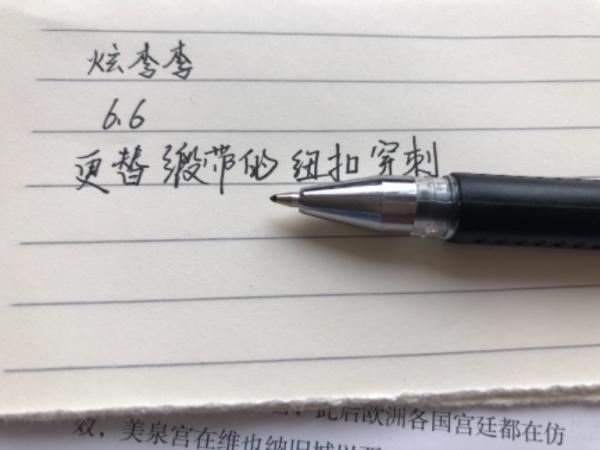 炫李李
6.6
更替缎带的纽扣穿刺
此后欧洲各国宫廷都在仿
效，美泉宫在维也纳旧城以西